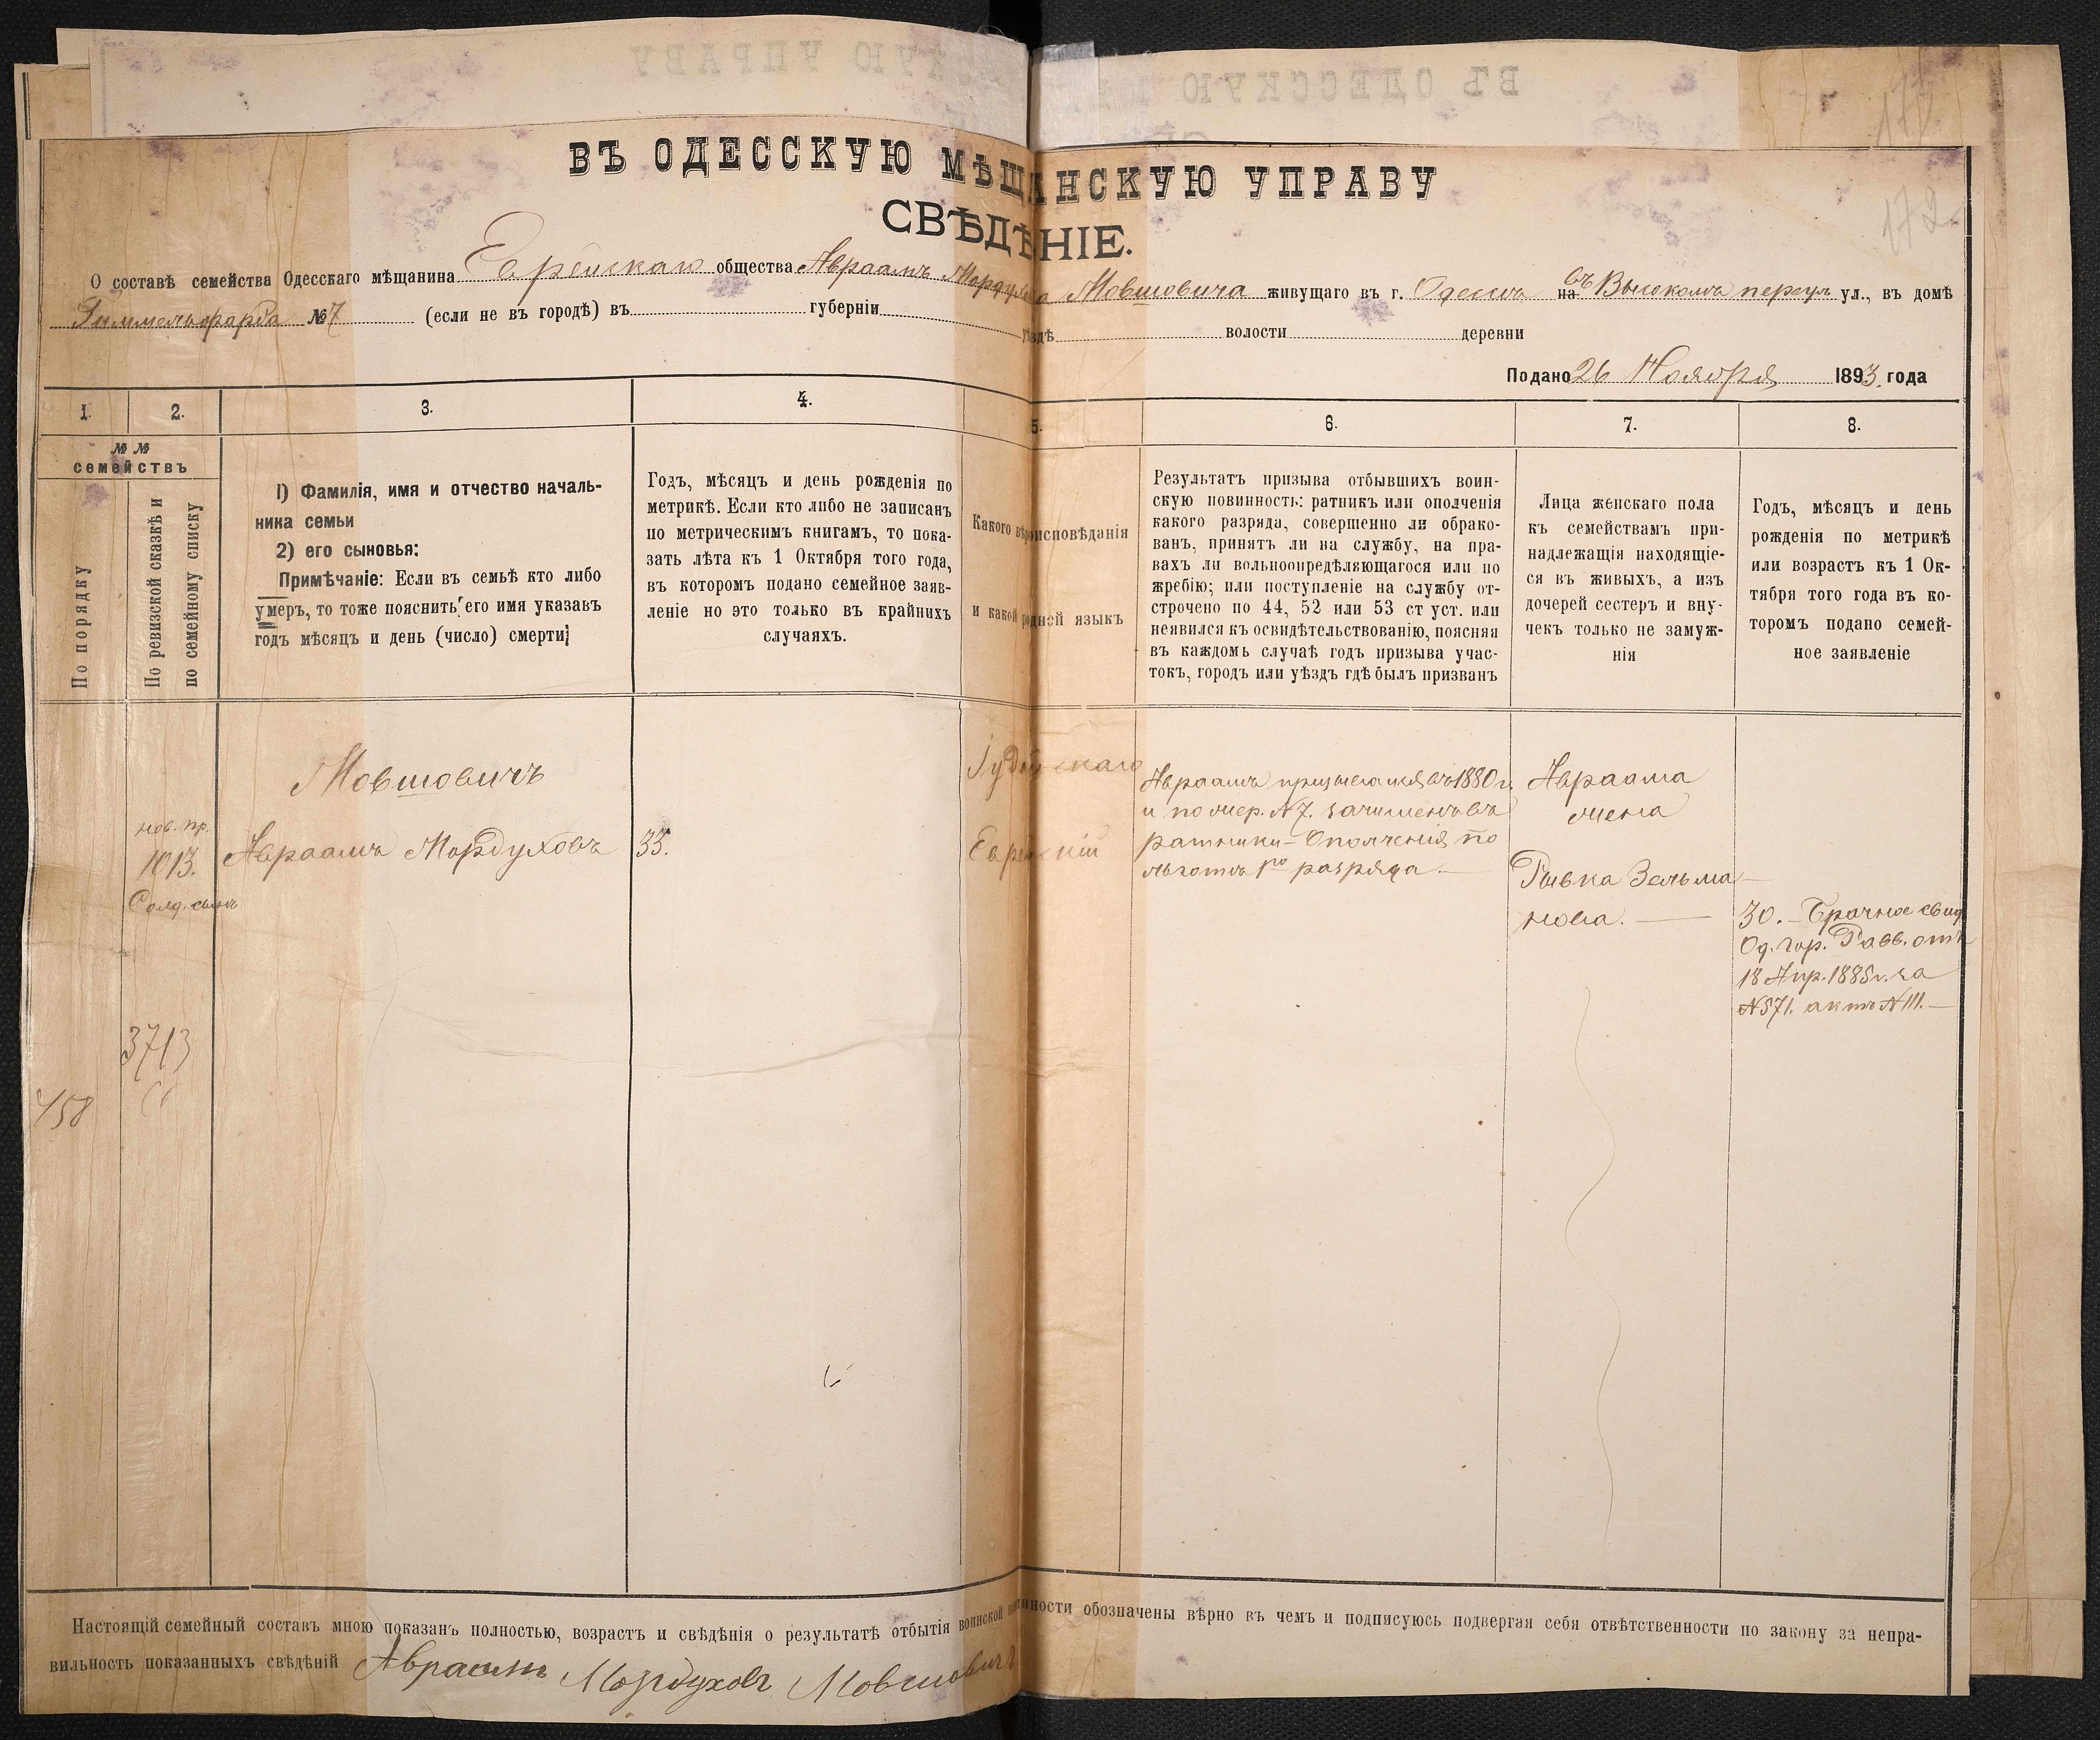 ВЪ ОДЕССКУЮ МѢЩАНСКУЮ УПРАВУ
СВѢДѢНІЕ.
О составѣ семейства Одесскаго мѣщанина Еврейскаго общества Авраамъ Мордухова Мовшовича живущаго въ г. Одессѣ на въ Высокомъ переул ул., въ домѣ
Гиммельфарба №7 (если не въ городѣ) въ губерніи уѣздѣ волости деревни
Подано 26 Ноября 1893. года
1. 2. 3. 4. 5. 6. 7. 8.
№ №
семействъ
По порядку
По ревизской сказкѣ и
по семейному списку
1) Фамилія, имя и отчество началь-
ника семьи
2) его сыновья:
Примѣчаніе: Если въ семьѣ кто либо
умеръ, то тоже пояснить его имя указавъ
годъ мѣсяцъ и день (число) смерти;
Годъ, мѣсяцъ и день рожденія по
метрикѣ. Если кто либо не записанъ
по метрическимъ книгамъ, то пока-
зать лѣта къ 1 Октября того года,
въ которомъ подано семейное заяв-
леніе но это только въ крайнихъ
случаяхъ.
Какого вѣроисповѣданія
и какой родной языкъ
Результатъ призыва отбывшихъ воин-
скую повинность: ратникъ или ополченія
какого разряда, совершенно ли обрако-
ванъ, принятъ ли на службу, на пра-
вахъ ли вольноопредѣляющагося или по
жребію; или поступленіе на службу от-
строчено по 44, 52 или 53 ст уст. или
неявился къ освидѣтельствованію, поясняя
въ каждомъ случаѣ годъ призыва учас-
токъ, городъ или уѣздъ гдѣ былъ призванъ
Лица женскаго пола
къ семействамъ при-
надлежащія находящіе-
ся въ живыхъ, а изъ
дочерей сестеръ и вну-
чекъ только не замуж-
нія
Годъ, мѣсяцъ и день
рожденія по метрикѣ
или возрастъ къ 1 Ок-
тября того года въ ко-
торомъ подано семей-
ное заявленіе
нов. пр.
1013.
Солд. сынъ
3713
458
Мовшовичъ
Авраамъ Мордуховъ
33.
Іудейскаго
Еврейскій
Авраамъ призывался въ 1880 г.
и по жер. №7. зачисленъ въ
ратники-Ополченія по
льготѣ 1го разряда.
Авраама
жена
Рывка Зельма
нова.
30. - Брачное свид
Од. Гор. Равв. отъ
18 Апр. 1885 г. за
№571. актъ №111.
172
Настоящій семейный составъ мною показанъ полностью, возрастъ и свѣдѣнія о результатѣ отбытія воинской повинности обозначены вѣрно въ чемъ и подписуюсь подвергая себя отвѣтственности по закону за непра-
вильность показанныхъ свѣдѣній Авраамъ Мордуховъ Мовшовичъ